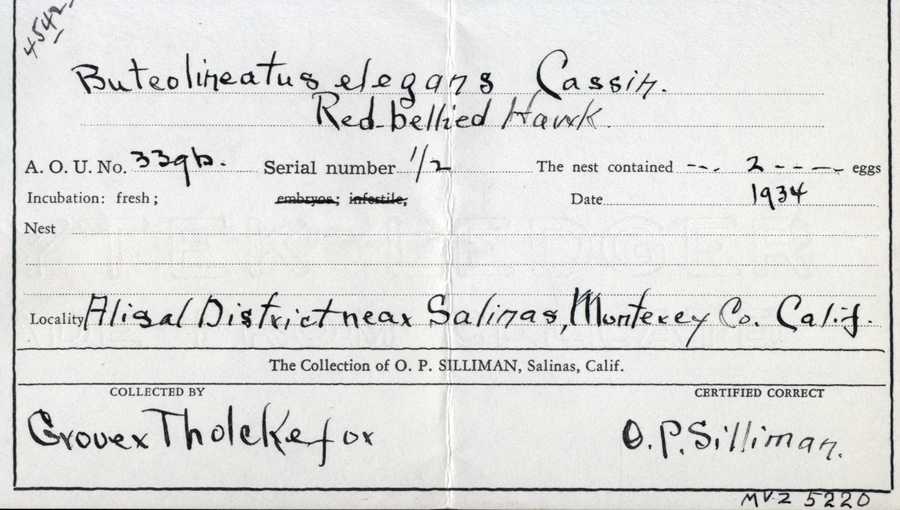 4542
Buteo lineatus elegans Cassin.
Red-bellied Hawk
A. O. U. No. 339b. Serial number 1/2 The nest contained --. 2 ---- eggs
Incubation: fresh; embryos; infertile; Date 1934
Nest
Locality Alisal District near Salinas, Monterey Co. Calif.
The Collection of O. P. SILLIMAN, Salinas, Calif.
COLLECTED BY CERTIFIED CORRECT
Grover Tholcke for O. P. Silliman.
MVZ 5220